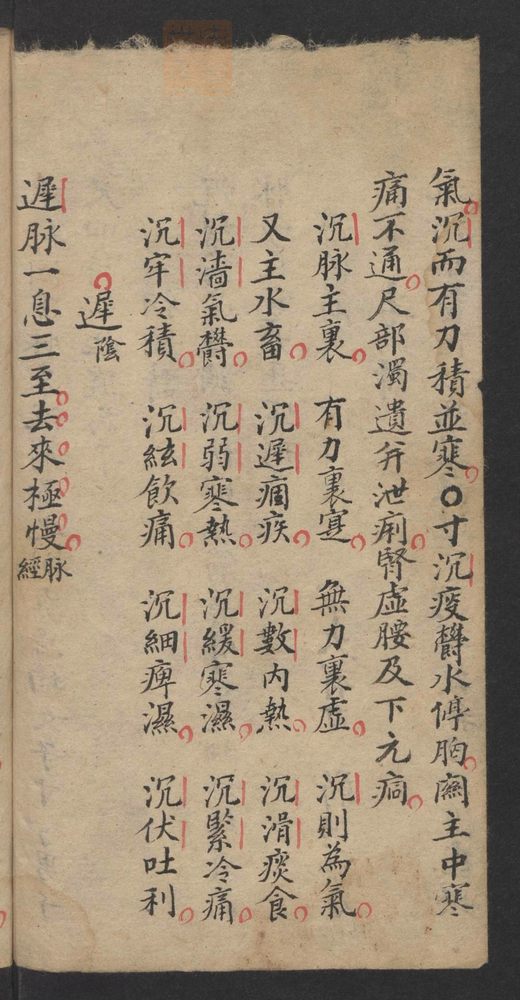 氣沉而有力積並寒〇寸沉痰欝水停胸關主中寒
痛不通尺部濁遺并泄痢腎虛腰及下元痌
沉脉主裏 有力裏寔 無力裏虛 沉則為氣
又主水畜 沉遲痼疾 沉數內熱 沉滑痰食
沉濇氣欝 沉弱寒熱 沉緩寒濕 沉緊冷痛
沉牢冷積 沉絃飲痛 沉細痺濕 沉伏吐利
遲陰
遲脉一息三至去來極慢脉經